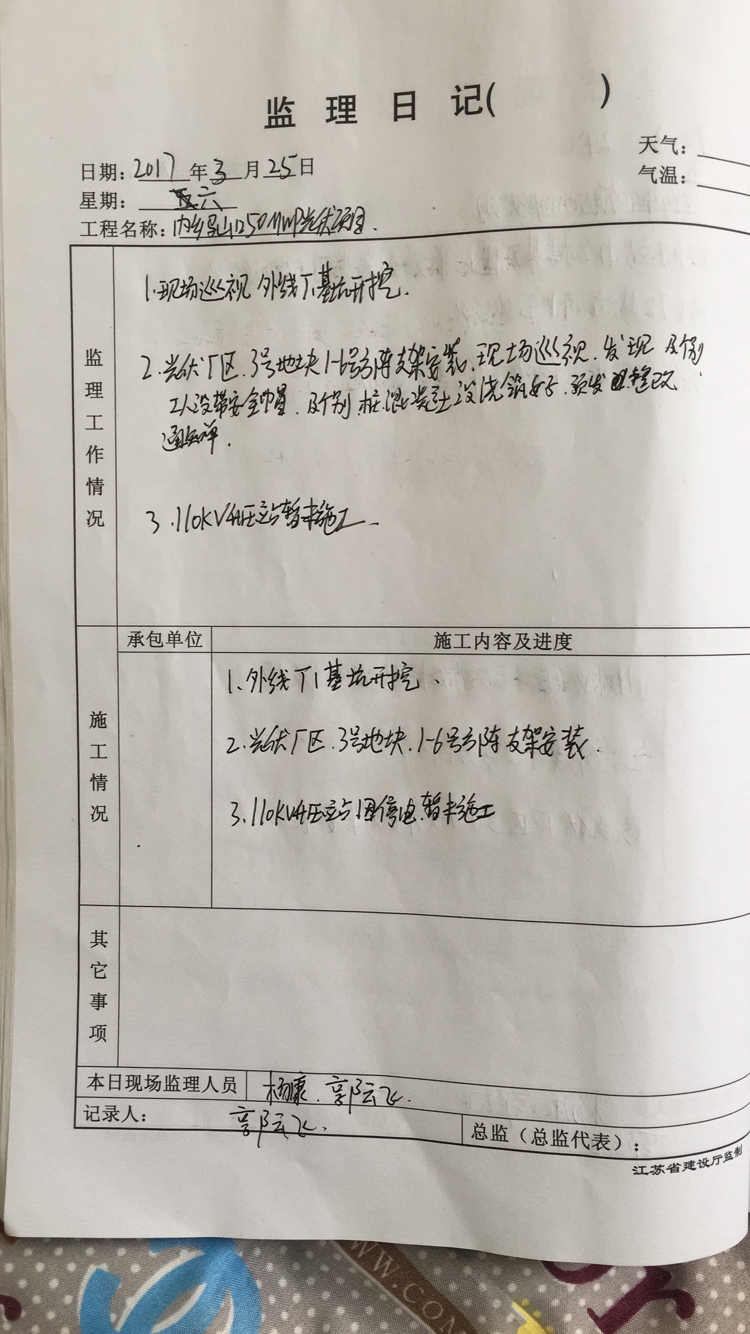 监理日记( )
天气:
日期: 2017 年 3 月 25 日
气温:
星期: 六
工程名称: 内乡 250MWP光伏项目.
监理工作情况
1.现场巡视 外线T1基坑开挖.
2.光伏厂区.3号地块1-6号方阵支架安装.现场巡视.发现 个别
工人没带安全帽. 个别桩混凝土没浇筑好. 预发 整改
通知单.
3.110KV升压站暂未施工.
施工情况
承包单位 施工内容及进度
1.外线T1基坑开挖.
2.光伏厂区.3号地块.1-6号方阵支架安装.
3.110KV升压站因停电暂未施工
其它事项
本日现场监理人员 杨康.郭云飞.
记录人: 郭云飞.
总监(总监代表):
江苏省建设厅监制
WWW.COM